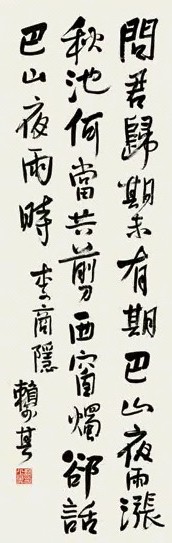 問君歸期未有期巴山夜雨漲
秋池何當共剪西窗燭郤話
巴山夜雨時 李商隱
賴少其